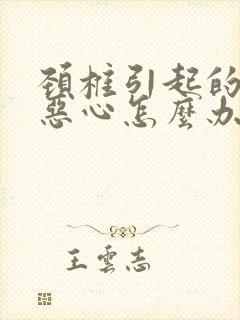 頚椎引起的
惡心怎麼办
王雲志